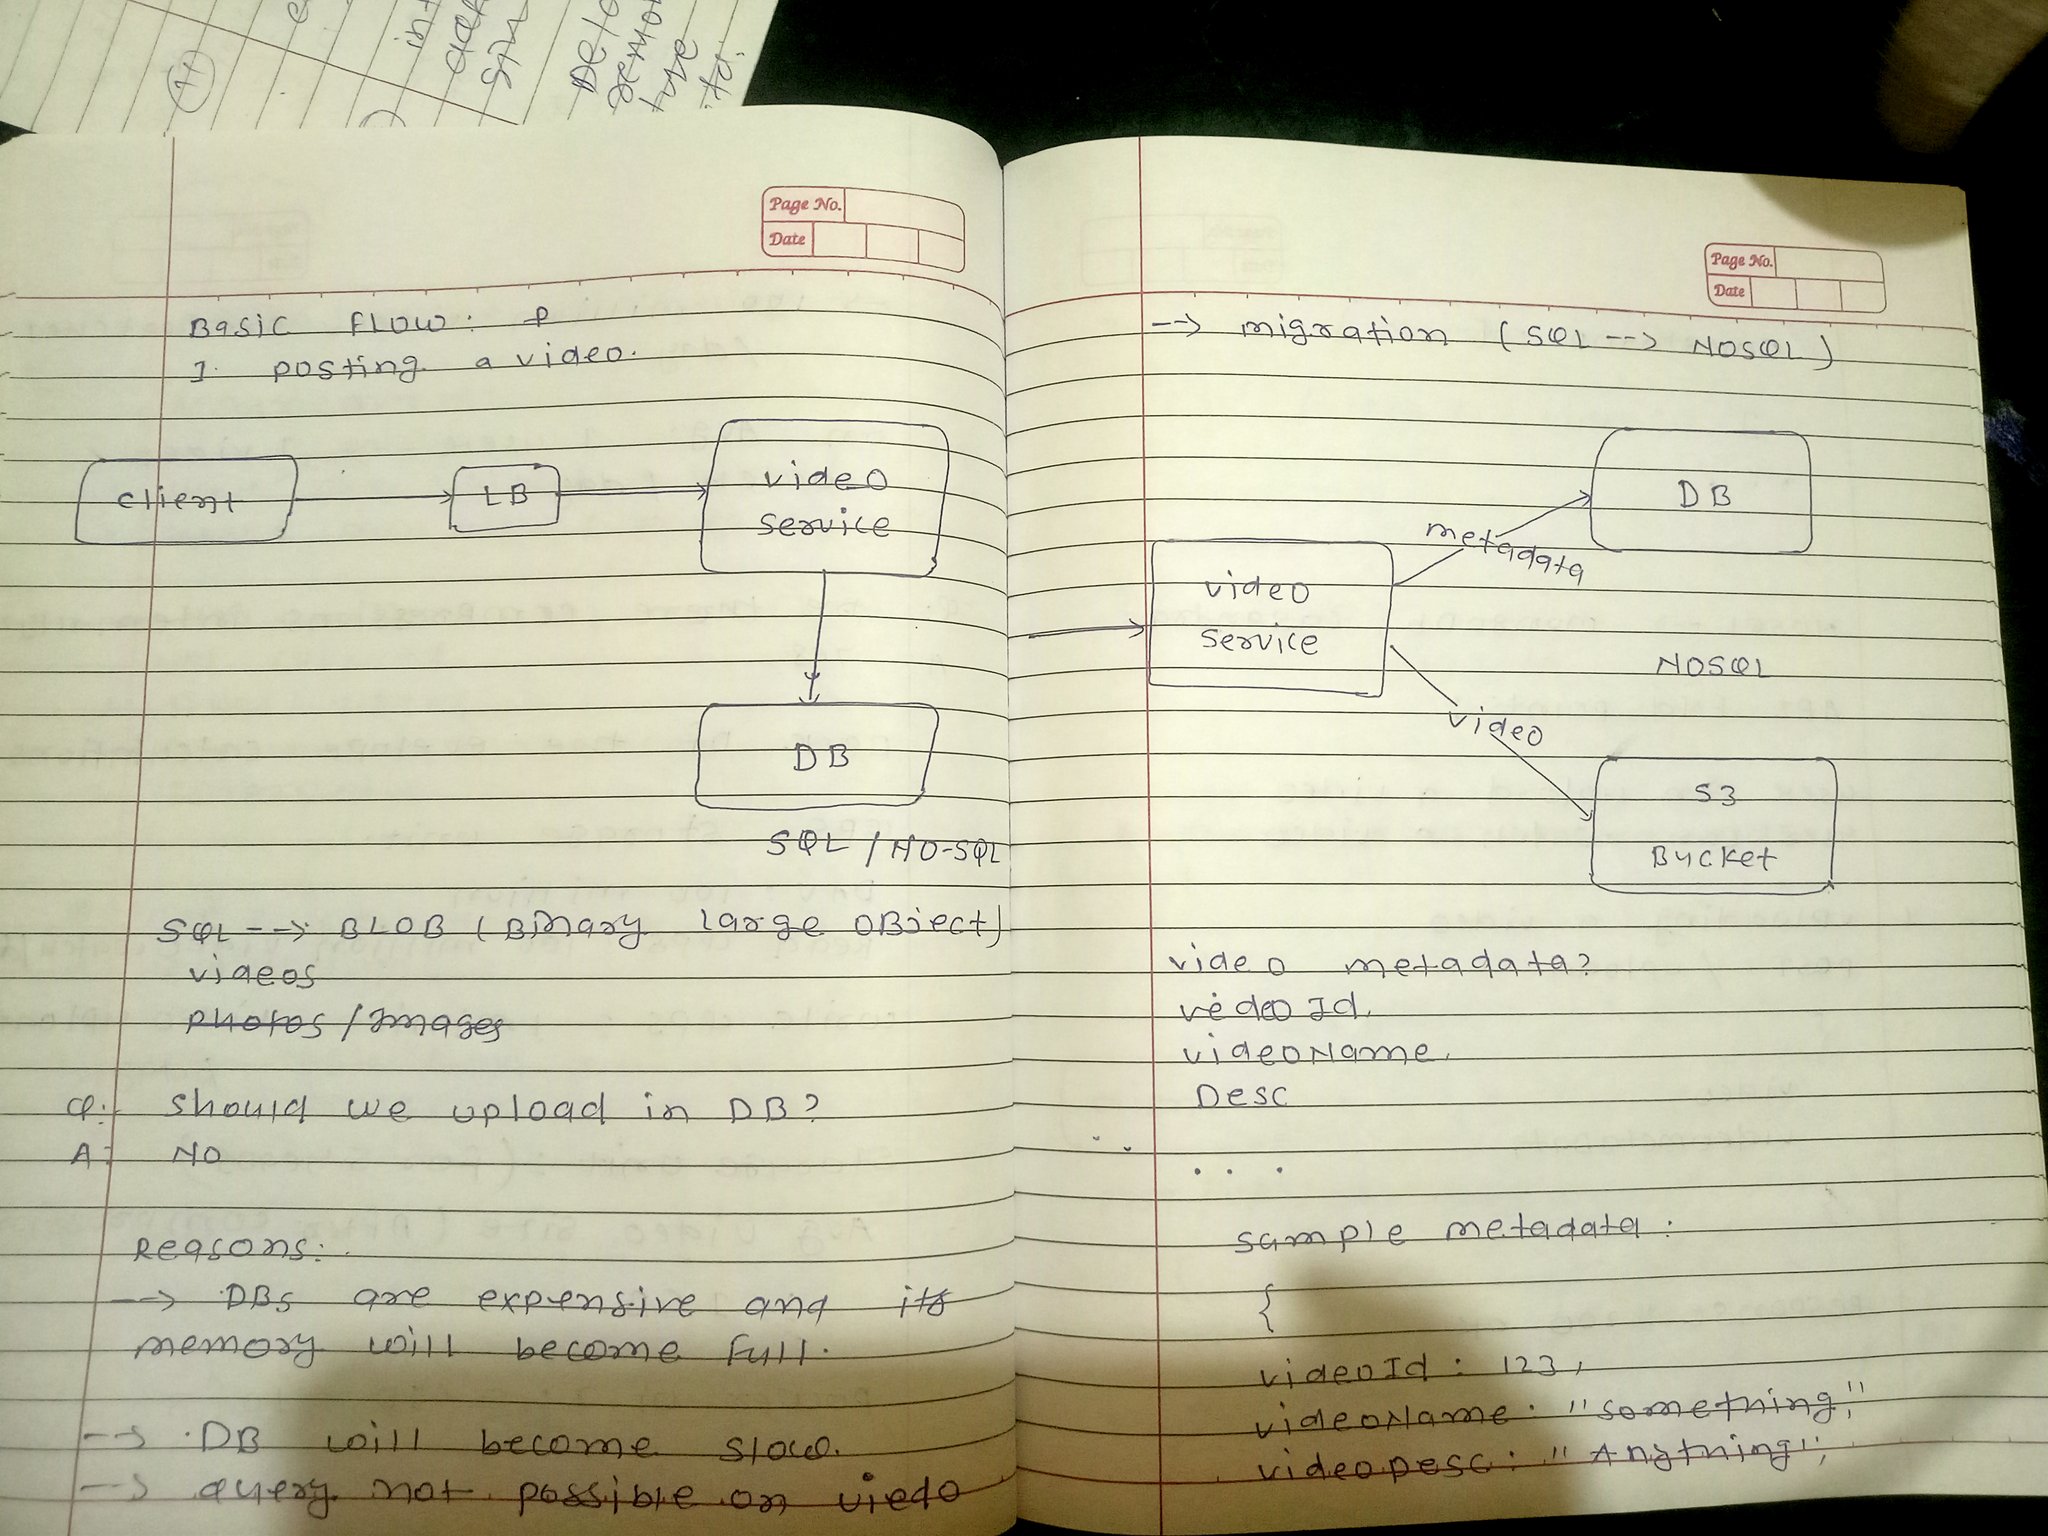 Page No.
Date
Basic FLOW: P
1. posting a video.
client
LB
video
service
DB
SQL / NO-SQL
SQL --> BLOB (Binary Large OBject)
videos
photos / Images
Q: should we upload in DB?
A: NO
Reasons:
--> DBs are expensive and its
memory will become full.
--> DB will become slow.
--> query not possible on viedo
Page No.
Date
--> migration (SQL --> NOSQL)
DB
metadata
video
service
NOSQL
video
S3
Bucket
video metadata?
vedeo Id,
videoName,
Desc
. . .
sample metadata:
{
videoId: 123,
videoName: "something",
videoDesc: "Anything",